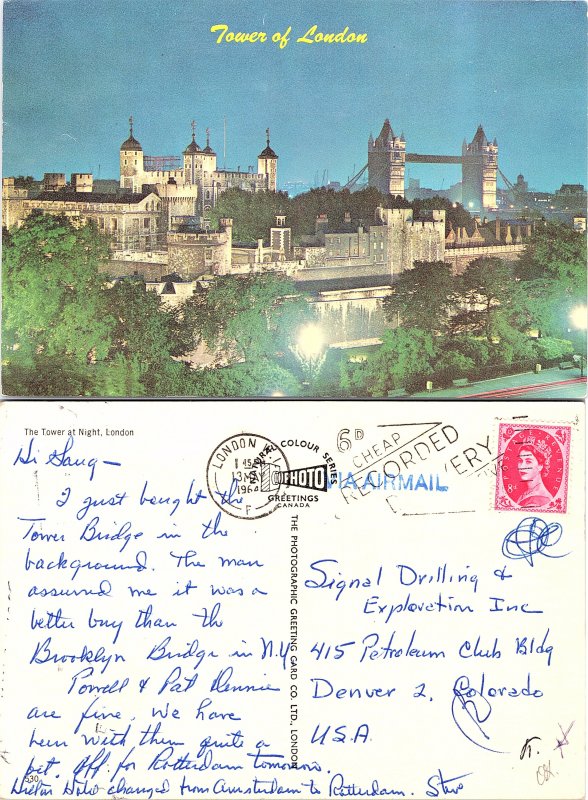 Tower of London
The Tower at Night, London
Hi Gang —
I just bought the
Tower Bridge in the
background. The man
assured me it was a
better buy than the
Brooklyn Bridge in N.Y.
Powell & Pat Dennie
are fine. We have
been with them quite a
bit. Off for Rotterdam tomorrow.
changed from Amsterdam to Rotterdam. Steve
530
LONDON
196
F
NATURAL COLOUR SERIES
PHOTO
GREETINGS
CANADA
6D
CHEAP
RECORDED
VIA AIRMAIL
THE PHOTOGRAPHIC GREETING CARD CO. LTD., LONDON
Signal Drilling &
Exploration Inc
415 Petroleum Club Bldg
Denver 2, Colorado
U.S.A.